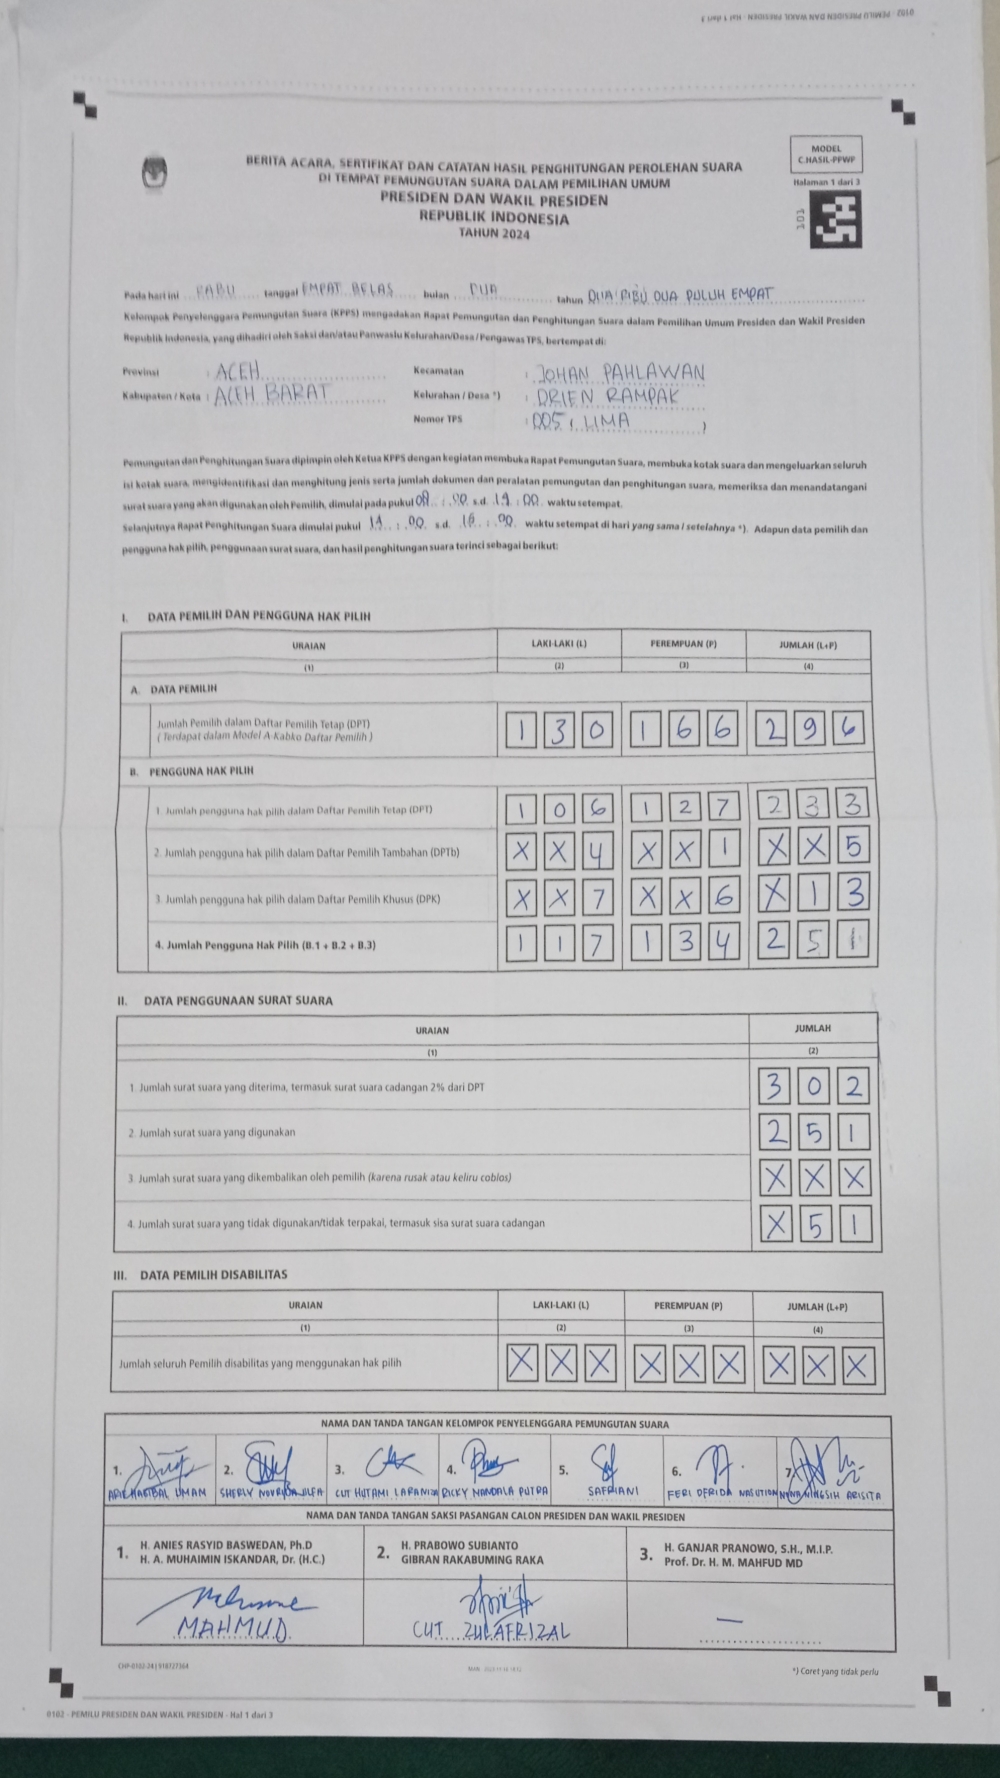 0102 - PEMILU PRESIDEN DAN WAKIL PRESIDEN - Hal 1 dari 3
MODEL
C.HASIL-PPWP
Halaman 1 dari 3
101
BERITA ACARA, SERTIFIKAT DAN CATATAN HASIL PENGHITUNGAN PEROLEHAN SUARA
DI TEMPAT PEMUNGUTAN SUARA DALAM PEMILIHAN UMUM
PRESIDEN DAN WAKIL PRESIDEN
REPUBLIK INDONESIA
TAHUN 2024
Pada hari ini RABU tanggal EMPAT BELAS bulan DUA tahun DUA RIBU DUA PULUH EMPAT
Kelompok Penyelenggara Pemungutan Suara (KPPS) mengadakan Rapat Pemungutan dan Penghitungan Suara dalam Pemilihan Umum Presiden dan Wakil Presiden
Republik Indonesia, yang dihadiri oleh Saksi dan/atau Panwaslu Kelurahan/Desa/Pengawas TPS, bertempat di:
Provinsi : ACEH Kecamatan : JOHAN PAHLAWAN
Kabupaten / Kota : ACEH BARAT Kelurahan / Desa *) : DRIEN RAMPAK
Nomor TPS : 005 ( LIMA )
Pemungutan dan Penghitungan Suara dipimpin oleh Ketua KPPS dengan kegiatan membuka Rapat Pemungutan Suara, membuka kotak suara dan mengeluarkan seluruh
isi kotak suara, mengidentifikasi dan menghitung jenis serta jumlah dokumen dan peralatan pemungutan dan penghitungan suara, memeriksa dan menandatangani
surat suara yang akan digunakan oleh Pemilih, dimulai pada pukul 08 : 00 s.d. 14 : 00 waktu setempat.
Selanjutnya Rapat Penghitungan Suara dimulai pukul 14 : 00 s.d. 16 : 00 waktu setempat di hari yang sama / setelahnya *). Adapun data pemilih dan
pengguna hak pilih, penggunaan surat suara, dan hasil penghitungan suara terinci sebagai berikut:
I. DATA PEMILIH DAN PENGGUNA HAK PILIH
URAIAN LAKI-LAKI (L) PEREMPUAN (P) JUMLAH (L+P)
(1) (2) (3) (4)
A. DATA PEMILIH
Jumlah Pemilih dalam Daftar Pemilih Tetap (DPT) 1 3 0 1 6 6 2 9 6
( Terdapat dalam Model A-Kabko Daftar Pemilih )
B. PENGGUNA HAK PILIH
1. Jumlah pengguna hak pilih dalam Daftar Pemilih Tetap (DPT) 1 0 6 1 2 7 2 3 3
2. Jumlah pengguna hak pilih dalam Daftar Pemilih Tambahan (DPTb) X X 4 X X 1 X X 5
3. Jumlah pengguna hak pilih dalam Daftar Pemilih Khusus (DPK) X X 7 X X 6 X 1 3
4. Jumlah Pengguna Hak Pilih (B.1 + B.2 + B.3) 1 1 7 1 3 4 2 5 1
II. DATA PENGGUNAAN SURAT SUARA
URAIAN JUMLAH
(1) (2)
1. Jumlah surat suara yang diterima, termasuk surat suara cadangan 2% dari DPT 3 0 2
2. Jumlah surat suara yang digunakan 2 5 1
3. Jumlah surat suara yang dikembalikan oleh pemilih (karena rusak atau keliru coblos) X X X
4. Jumlah surat suara yang tidak digunakan/tidak terpakai, termasuk sisa surat suara cadangan X 5 1
III. DATA PEMILIH DISABILITAS
URAIAN LAKI-LAKI (L) PEREMPUAN (P) JUMLAH (L+P)
(1) (2) (3) (4)
Jumlah seluruh Pemilih disabilitas yang menggunakan hak pilih X X X X X X X X X
NAMA DAN TANDA TANGAN KELOMPOK PENYELENGGARA PEMUNGUTAN SUARA
1. 2. 3. 4. 5. 6. 7.
UMAM SHERLY CUT HUTAMI RICKY MANDALA PUTRA SAFRIANI FERI OFRIDA NASUTION ARISITA
NAMA DAN TANDA TANGAN SAKSI PASANGAN CALON PRESIDEN DAN WAKIL PRESIDEN
1. H. ANIES RASYID BASWEDAN, Ph.D
H. A. MUHAIMIN ISKANDAR, Dr. (H.C.)
2. H. PRABOWO SUBIANTO
GIBRAN RAKABUMING RAKA
3. H. GANJAR PRANOWO, S.H., M.I.P.
Prof. Dr. H. M. MAHFUD MD
MAHMUD CUT ZULAFRIZAL
*) Coret yang tidak perlu
0102 - PEMILU PRESIDEN DAN WAKIL PRESIDEN - Hal 1 dari 3